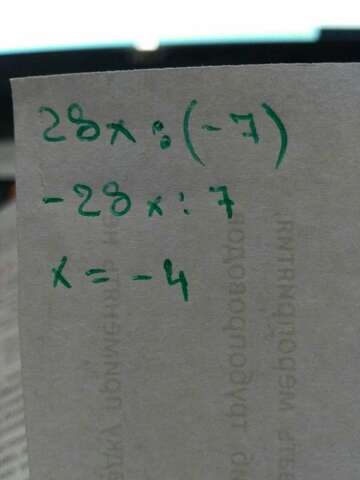 28x : (-7)
-28x : 7
x = -4